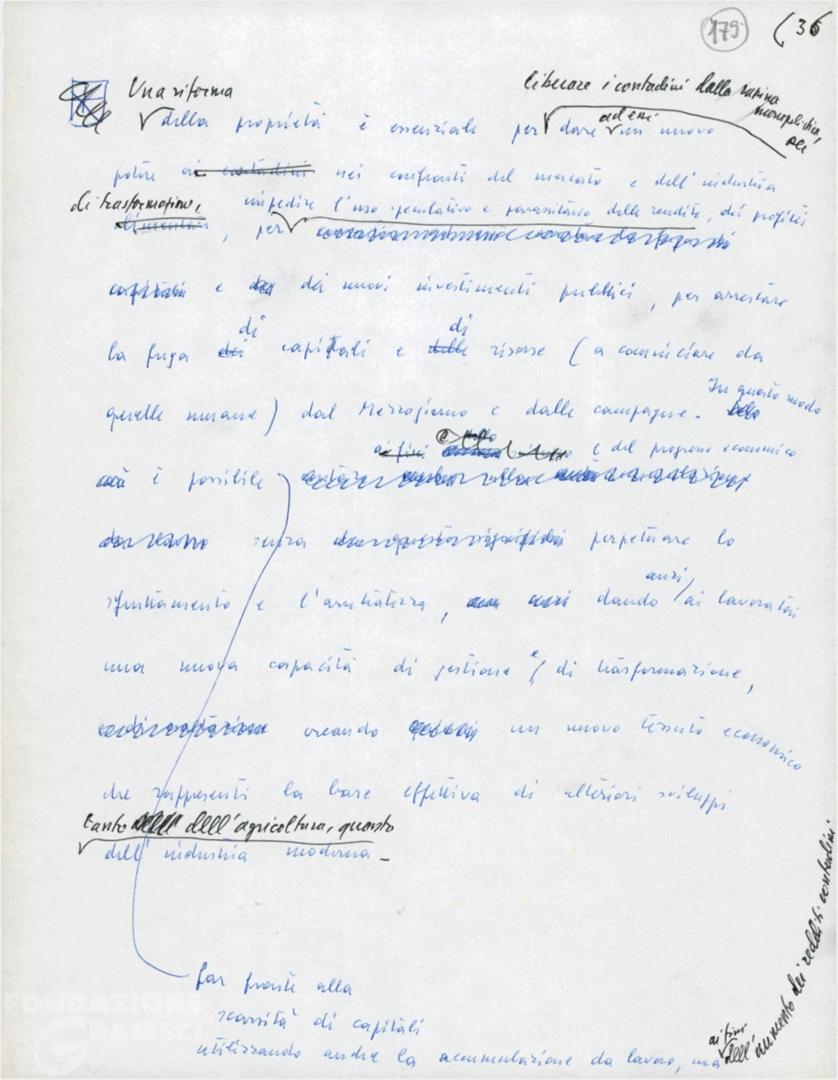 179.
36
Una riforma
liberare i contadini dalla rapina
monopolistica,
per
ad essi
della proprietà è essenziale per dare un nuovo
potere ai contadini nei confronti del mercato e dell'industria
di trasformazione,
impedire l'uso speculativo e parassitario delle rendite, dei profitti
alimentari, per
capitali e dei nuovi investimenti pubblici, per arrestare
di di
la fuga dei capitali e delle risorse (a cominciare da
In questo modo
quelle umane) dal Mezzogiorno e dalle campagne.
ai fini e del progresso economico
è possibile
senza perpetuare lo
anzi,
sfruttamento e l'arretratezza, dando ai lavoratori
una nuova capacità di gestione e di trasformazione,
creando un nuovo tessuto economico
che rappresenti la base effettiva di ulteriori sviluppi
tanto dell'agricoltura, quanto
dell'industria moderna.
far fronte alla
scarsità di capitali
utilizzando anche la accumulazione da lavoro, ma
ai fini
dell'aumento dei redditi contadini
FONDAZIONE
GRAMSCI